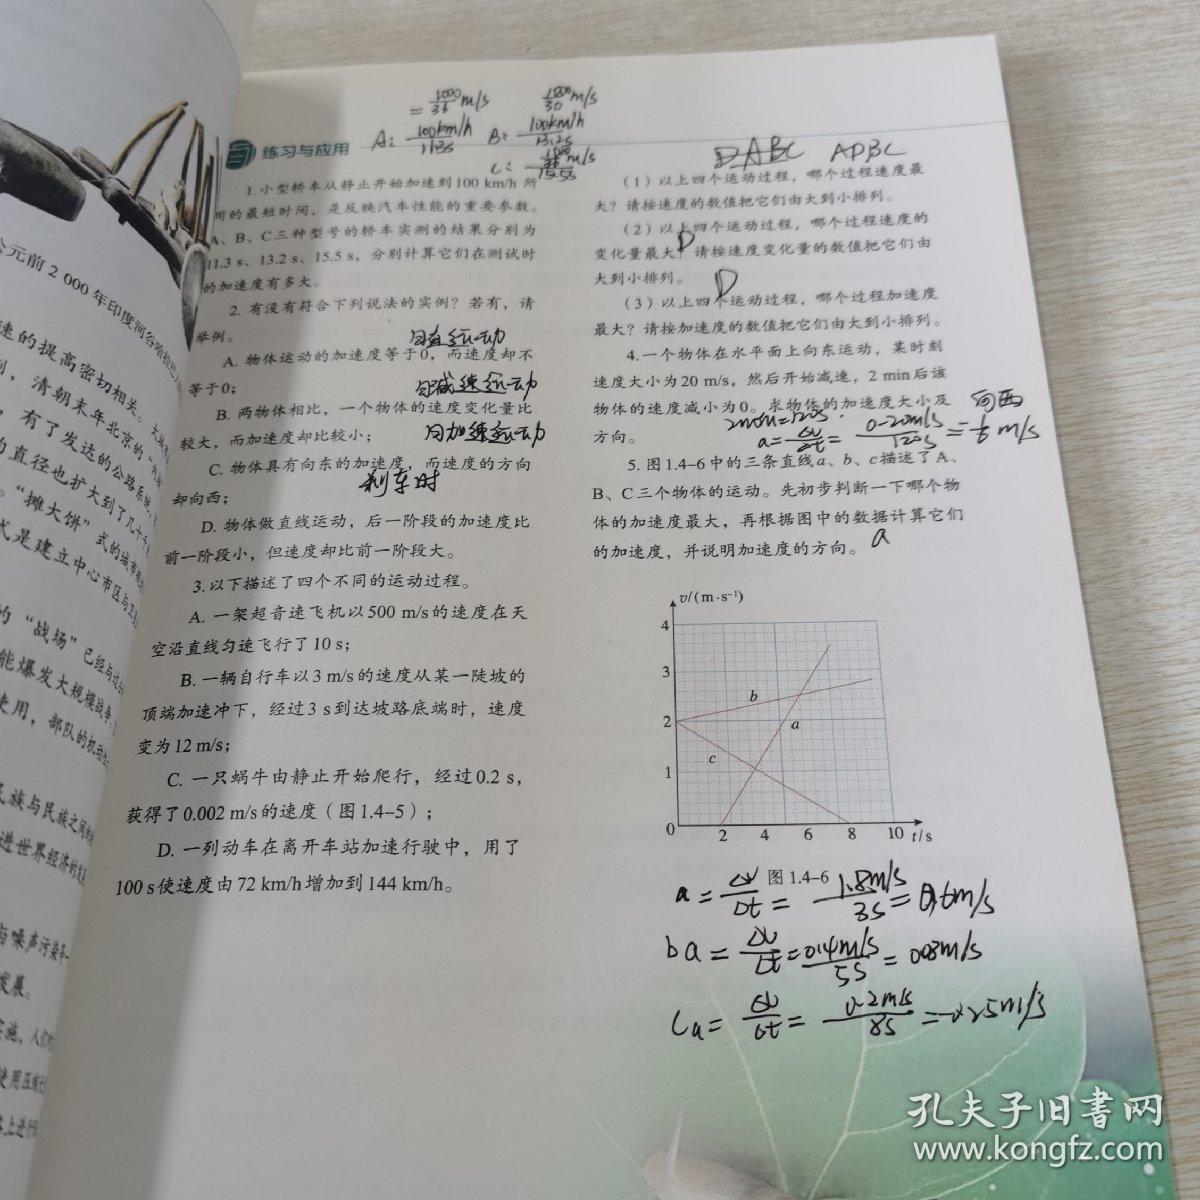 = 1000/36 m/s
A: 100km/h / 11.3s B: 100km/h / 13.2s
练习与应用
1.小型轿车从静止开始加速到100 km/h 所
用的最短时间，是反映汽车性能的重要参数。
A、B、C三种型号的轿车实测的结果分别为
11.3 s、13.2 s、15.5 s，分别计算它们在测试时
的加速度有多大。
2. 有没有符合下列说法的实例？若有，请
举例。
匀直运动
A. 物体运动的加速度等于0，而速度却不
等于0；
匀减速运动
B. 两物体相比，一个物体的速度变化量比
较大，而加速度却比较小；
匀加速运动
C. 物体具有向东的加速度，而速度的方向
却向西；
刹车时
D. 物体做直线运动，后一阶段的加速度比
前一阶段小，但速度却比前一阶段大。
3.以下描述了四个不同的运动过程。
A. 一架超音速飞机以500 m/s的速度在天
空沿直线匀速飞行了10 s；
B. 一辆自行车以3 m/s的速度从某一陡坡的
顶端加速冲下，经过3 s到达坡路底端时，速度
变为12 m/s；
C. 一只蜗牛由静止开始爬行，经过0.2 s，
获得了0.002 m/s的速度（图1.4-5）；
D. 一列动车在离开车站加速行驶中，用了
100 s使速度由72 km/h增加到144 km/h。
DABC ADBC
（1）以上四个运动过程，哪个过程速度最
大？请按速度的数值把它们由大到小排列。
（2）以上四个运动过程，哪个过程速度的
变化量最大？请按速度变化量的数值把它们由
大到小排列。
D
D
（3）以上四个运动过程，哪个过程加速度
最大？请按加速度的数值把它们由大到小排列。
4.一个物体在水平面上向东运动，某时刻
速度大小为20 m/s，然后开始减速，2 min后该
物体的速度减小为0。求物体的加速度大小及
方向。
向西
2min=120s
a=Δv/Δt= 0-20m/s / 120s =-1/6 m/s
5. 图1.4-6中的三条直线a、b、c描述了A、
B、C三个物体的运动。先初步判断一下哪个物
体的加速度最大，再根据图中的数据计算它们
的加速度，并说明加速度的方向。
a
v/(m·s⁻¹)
4
3
2
1
0
b
a
c
2 4 6 8 10 t/s
图1.4-6
a=Δv/Δt= 1.8m/s / 3s =0.6m/s
ba=Δv/Δt= 0.4m/s / 5s = 0.08m/s
Ca=Δv/Δt= 0-2m/s / 8s =-0.25m/s
公元前2 000年印度河谷哈拉巴人
速的提高密切相关。
清朝末年北京的
有了发达的公路系统
的直径也扩大到了几十千
“摊大饼”式的城市
式是建立中心市区与卫星
的“战场”已经与过去
能爆发大规模战争
使用，部队的机动性
民族与民族之间的
进世界经济的发展
与噪声污染
发展。
孔夫子旧书网
www.kongfz.com